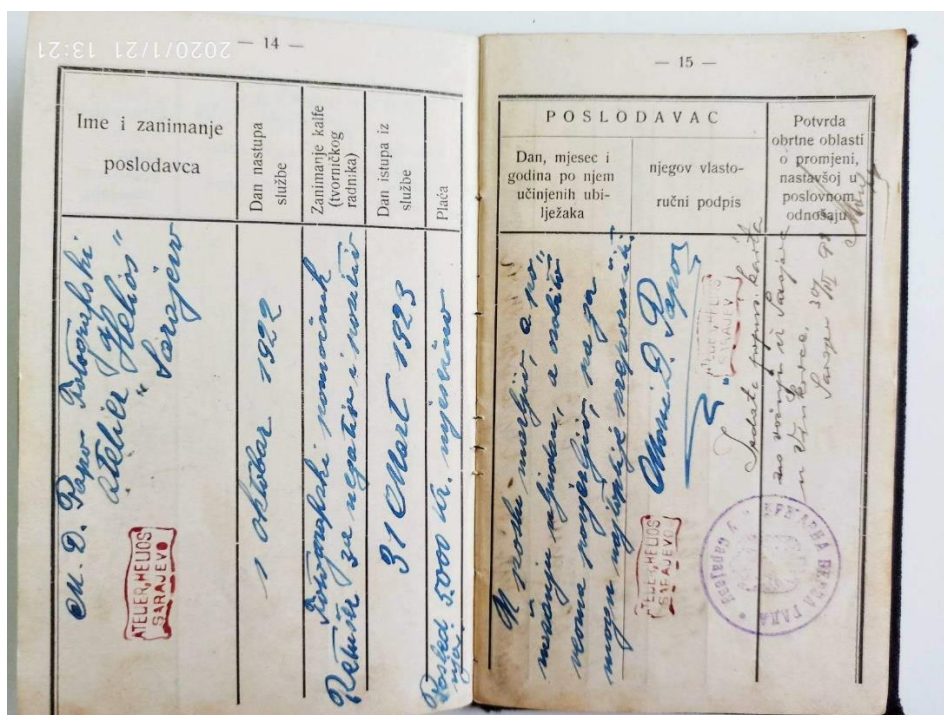 2020/1/21 13:21
— 14 —
Ime i zanimanje
poslodavca
Dan nastupa
službe
Zanimanje kalfe
(tvorničkog
radnika)
Dan istupa iz
službe
Plaća
M. D. Papo Fotografski
Atelier „Helios"
Sarajevo
ATELIER „HELIOS
SARAJEVO
1 oktobar 1922
Fotografski pomoćnik
Retušer za negativ i pozitiv
31 Mart 1923
Posled
nja: 5000 K. mjesečno
— 15 —
POSLODAVAC
Dan, mjesec i
godina po njem
učinjenih ubi-
lježaka
njegov vlasto-
ručni podpis
Potvrda
obrtne oblasti
o promjeni,
nastavšoj u
poslovnom
odnošaju
U poslu marljiv, a po
našanju uljudan, a osobito
veoma povjerljiv, pa ga
mogu najtoplije preporučiti
D. Papo
ATELIER „HELIOS
SARAJEVO
ATELIER „HELIOS
SARAJEVO
Izdata
za vožnju iz Sarajeva
u Vinkovce.
Sarajevo 30/III 923
Сарајево